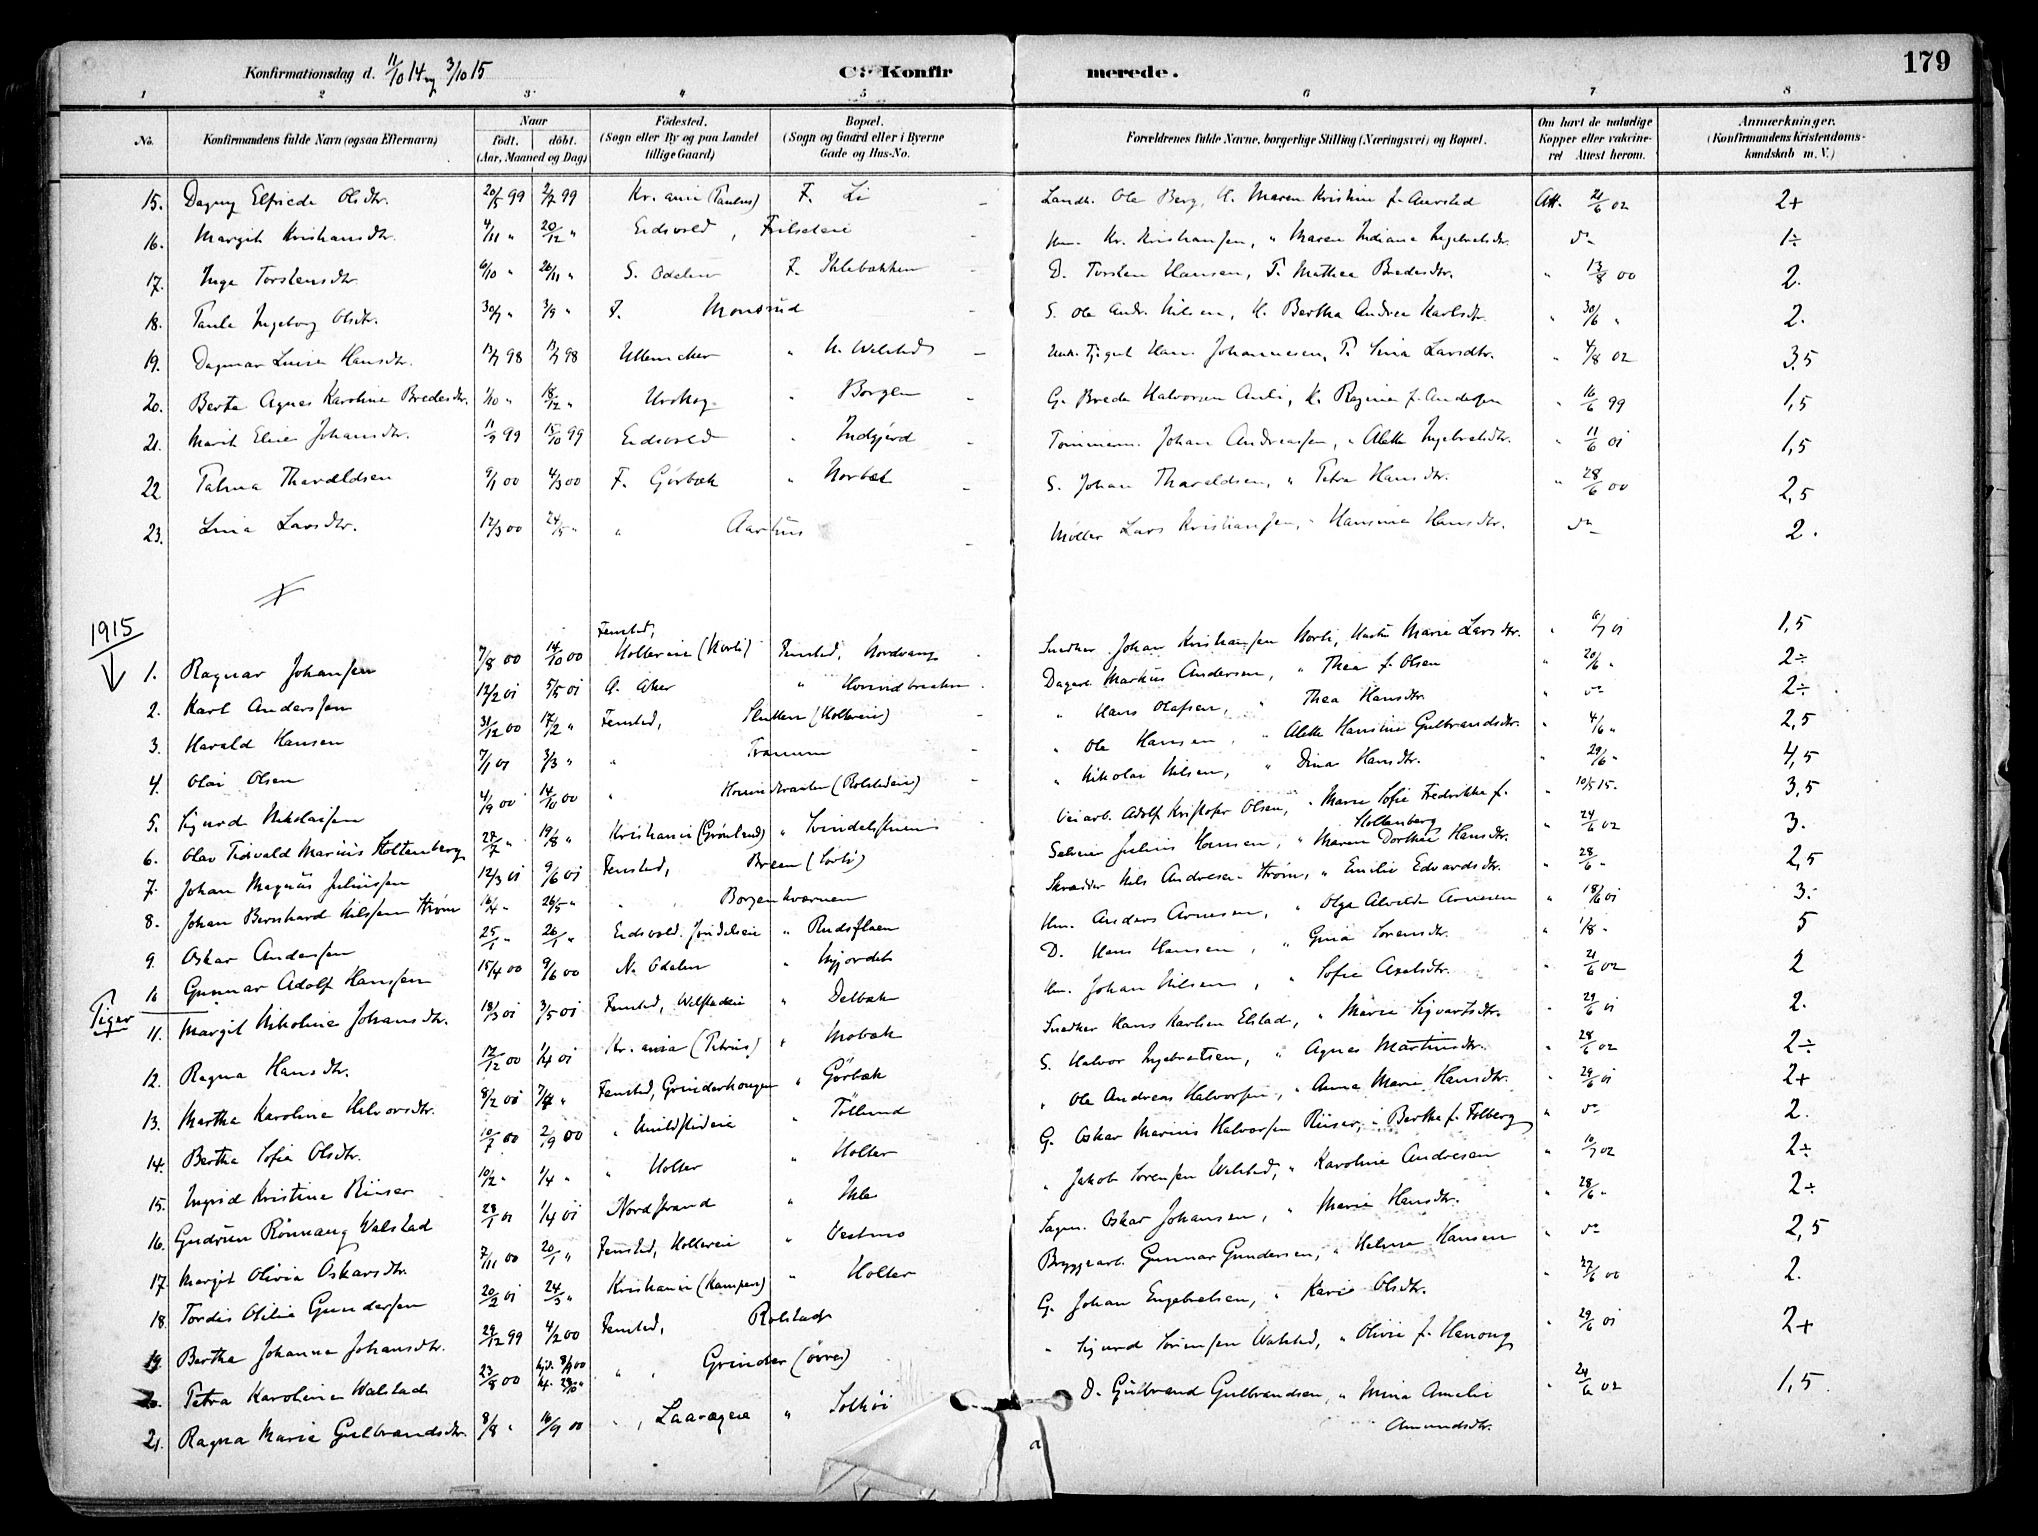 179
Konfirmationsdag d. 11/10 14 og 3/10 15
C: Konfirmerede.
1 2 3 4 5 6 7 8
No. Konfirmandens fulde Navn (ogsaa Efternavn) Naar født. døbt. (Aar, Maaned og Dag) Fødested. (Sogn eller By og paa Landet tillige Gaard) Bopæl. (Sogn og Gaard eller i Byerne Gade og Hus-No. Forældrenes fulde Navne, borgerlige Stilling (Næringsvei) og Bopæl. Om havt de naturlige Kopper eller vakcineret Attest herom. Anmærkninger. (Konfirmandens Kristendomskundskab m. V.)
15. Dagny Elfriede Olsdtr. 20/5 99 2/7 99 Kr.ania (Paulus) F. Li Ole Berg, Maren Kristine f. Aurstad Att. 21/6 02 2+
16. Margit Kristiansdtr. 4/11 " 20/12 " Eidsvold, Kr. Kristiansen, " Maren Indiana Ingebretsdtr. do 1÷
17. Inga Torstensdtr. 6/10 " 26/11 " S. Odalen F. Ihlebakken D. Torsten Hansen, F. Mathea Bredesdtr. " 13/8 00 2.
18. Paula Ingeborg Olsdtr. 30/7 " 3/9 " F. Monsrud S. Ole Andr. Nilsen, H. Bertha Andrea Karlsdtr. " 30/6 " 2.
19. Dagmar Luise Hansdtr. 13/7 98 98 Ullensaker " N. Welstad Hans Johannesen, F. Lina Larsdtr. " 4/8 02 3,5
20. Berta Agnes Karoline Bredesdtr. 1/10 " 18/12 " Urskog " Borgen G. Brede Halvorsen Auli, H. Regine f. Andersen " 16/6 99 1,5
21. Marit Eline Johansdtr. 11/9 99 15/10 99 Eidsvold " Indgjerd Tømmerm. Johan Andreassen, " Alette Ingebretsdtr. " 11/6 01 1,5
22 Palma Tharaldsen 9/1 00 4/3 00 F. Gørbæk " Horbæk S. Johan Tharaldsen, " Petra Hansdtr. " 28/6 00 2,5
23. Lina Larsdtr. 12/3 00 24/5 " " Aarhus Møller Lars Kristiansen, " Hansine Hansdtr. do 2.
1915
1. Ragnar Johansen 7/8 00 14/10 00 Fenstad, Hollereie (Horli) Fenstad, Nordvang Snedker Johan Kristiansen Horli, Hustru Marie Larsdtr. " 01 1,5
2. Karl Anderssen 12/2 01 5/5 01 A. Aker " Dagarb. Markus Andersen, " Thea f. Olsen " 20/6 " 2÷
3. Harald Hansen 31/12 00 17/2 " Fenstad, (Hollereie) " Hans Olafsen, " Thea Hansdtr. " do 2÷
4. Olai Olsen 7/1 01 3/3 " " Tranum " Ole Hansen, " Alette Hansine Gulbrandsdtr. " 4/6 " 2,5
5. Sigurd Nikolaisen 4/9 00 14/10 00 " (Rolstadeie) " Nikolai Nilsen, " Dina Hansdtr. " 29/6 " 4,5
6. Olav Tidevald Marius Holtenberg 22/7 " 19/8 " Kristiania (Grønland) " Veiarb. Adolf Kristofer Olsen, " Marie Sofie Fredrikke f. Holtenberg " 10/5 15. 3,5
7. Johan Magnus Juliussen 12/3 01 9/6 01 Fenstad, Julius Hansen, " Maren Dorthea Hansdtr. " 24/6 02 3.
8. Johan Bernhard Nilssen Strøm 16/4 " 26/5 " " Borgenkværnen Skrædder Nils Andresen Strøm, " Emilie Edvardsdtr. " 28/6 " 2,5
9. Oskar Andersen 25/1 " 26/1 " Eidsvold " Rudsflaen Hm. Anders Arnesen, " Olga Alvilde Arnesen " 18/6 01 3.
10 Gunnar Adolf Hanssen 15/4 00 9/6 00 N. Odalen " D. Hans Hansen, " Gina Sørensdtr. " 1/8 " 5
Piger
11. Margit Nikoline Johansdtr. 18/3 01 3/5 01 Fenstad, Welstadeie " Delbæk Hm. Johan Nilsen, " Sofie Axelsdtr. " 21/6 02 2
12. Ragna Hansdtr. 12/12 00 1/4 01 Kr.ania (Petrus) " Mobæk Snedker Hans Karlsen Elstad, " Marie Sigvartsdtr. " 29/6 01 2.
13. Martha Karoline Halvorsdtr. 8/2 01 7/4 " Fenstad, " Gørbæk S. Halvor Ingebretsen, " Agnes Martinsdtr. " 28/6 02 2÷
14. Bertha Sofie Olsdtr. 10/7 00 2/9 00 " " Tøllund " Ole Andreas Halvorsen, " Anna Marie Hansdtr. " 29/6 01 2+
15. Ingrid Kristine Riiser 10/2 " 1/4 " " Holter " Holter G. Oskar Marius Halvorsen Riiser, " Bertha f. Folberg " do 2.
16. Gudrun Rønnaug Walstad 28/1 01 1/4 01 Nordstrand " Ihle " Jakob Sørensen Walstad, " Karoline Andresen " 02 2÷
17. Margit Olivia Oskarsdtr. 7/11 00 20/1 " Fenstad, Hollereie " Vestmo Sagm. Oskar Johansen, " Marie Hansdtr. " 28/6 " 2÷
18. Tordis Otilie Gundersen 20/2 01 24/3 " Kristiania (Kampen) " Holter Bryggearb. Gunnar Gundersen, " Helene Hansen " do 2,5
19. Bertha Johanna Johansdtr. 29/12 99 4/2 00 Fenstad, Rolstad G. Johan Engebretsen, " Karie Olsdtr. " 27/6 00 2.
20. Petra Karoline Walstad 23/8 00 hjd. 8/9 00 " Grinder (øvre) " Sigurd Sørensen Walstad, " Olivie f. Henong " 29/6 01 2+
21. Ragna Marie Gulbrandsdtr. 8/8 " 16/9 00 " Laaraseie " Solhøi D. Gulbrand Gulbrandsen, " Mina Amalie Amundsdtr. " 24/6 02 1,5